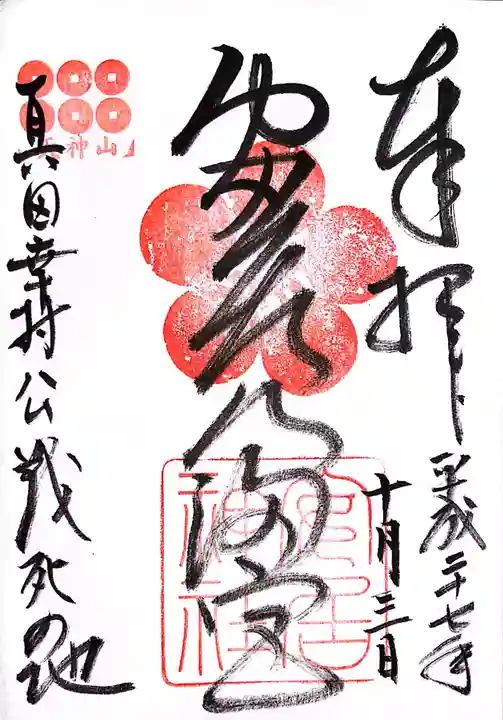 奉拝
平成二十七年
十月三日
安居天満宮
安居
神社
真田幸村公戦死の地